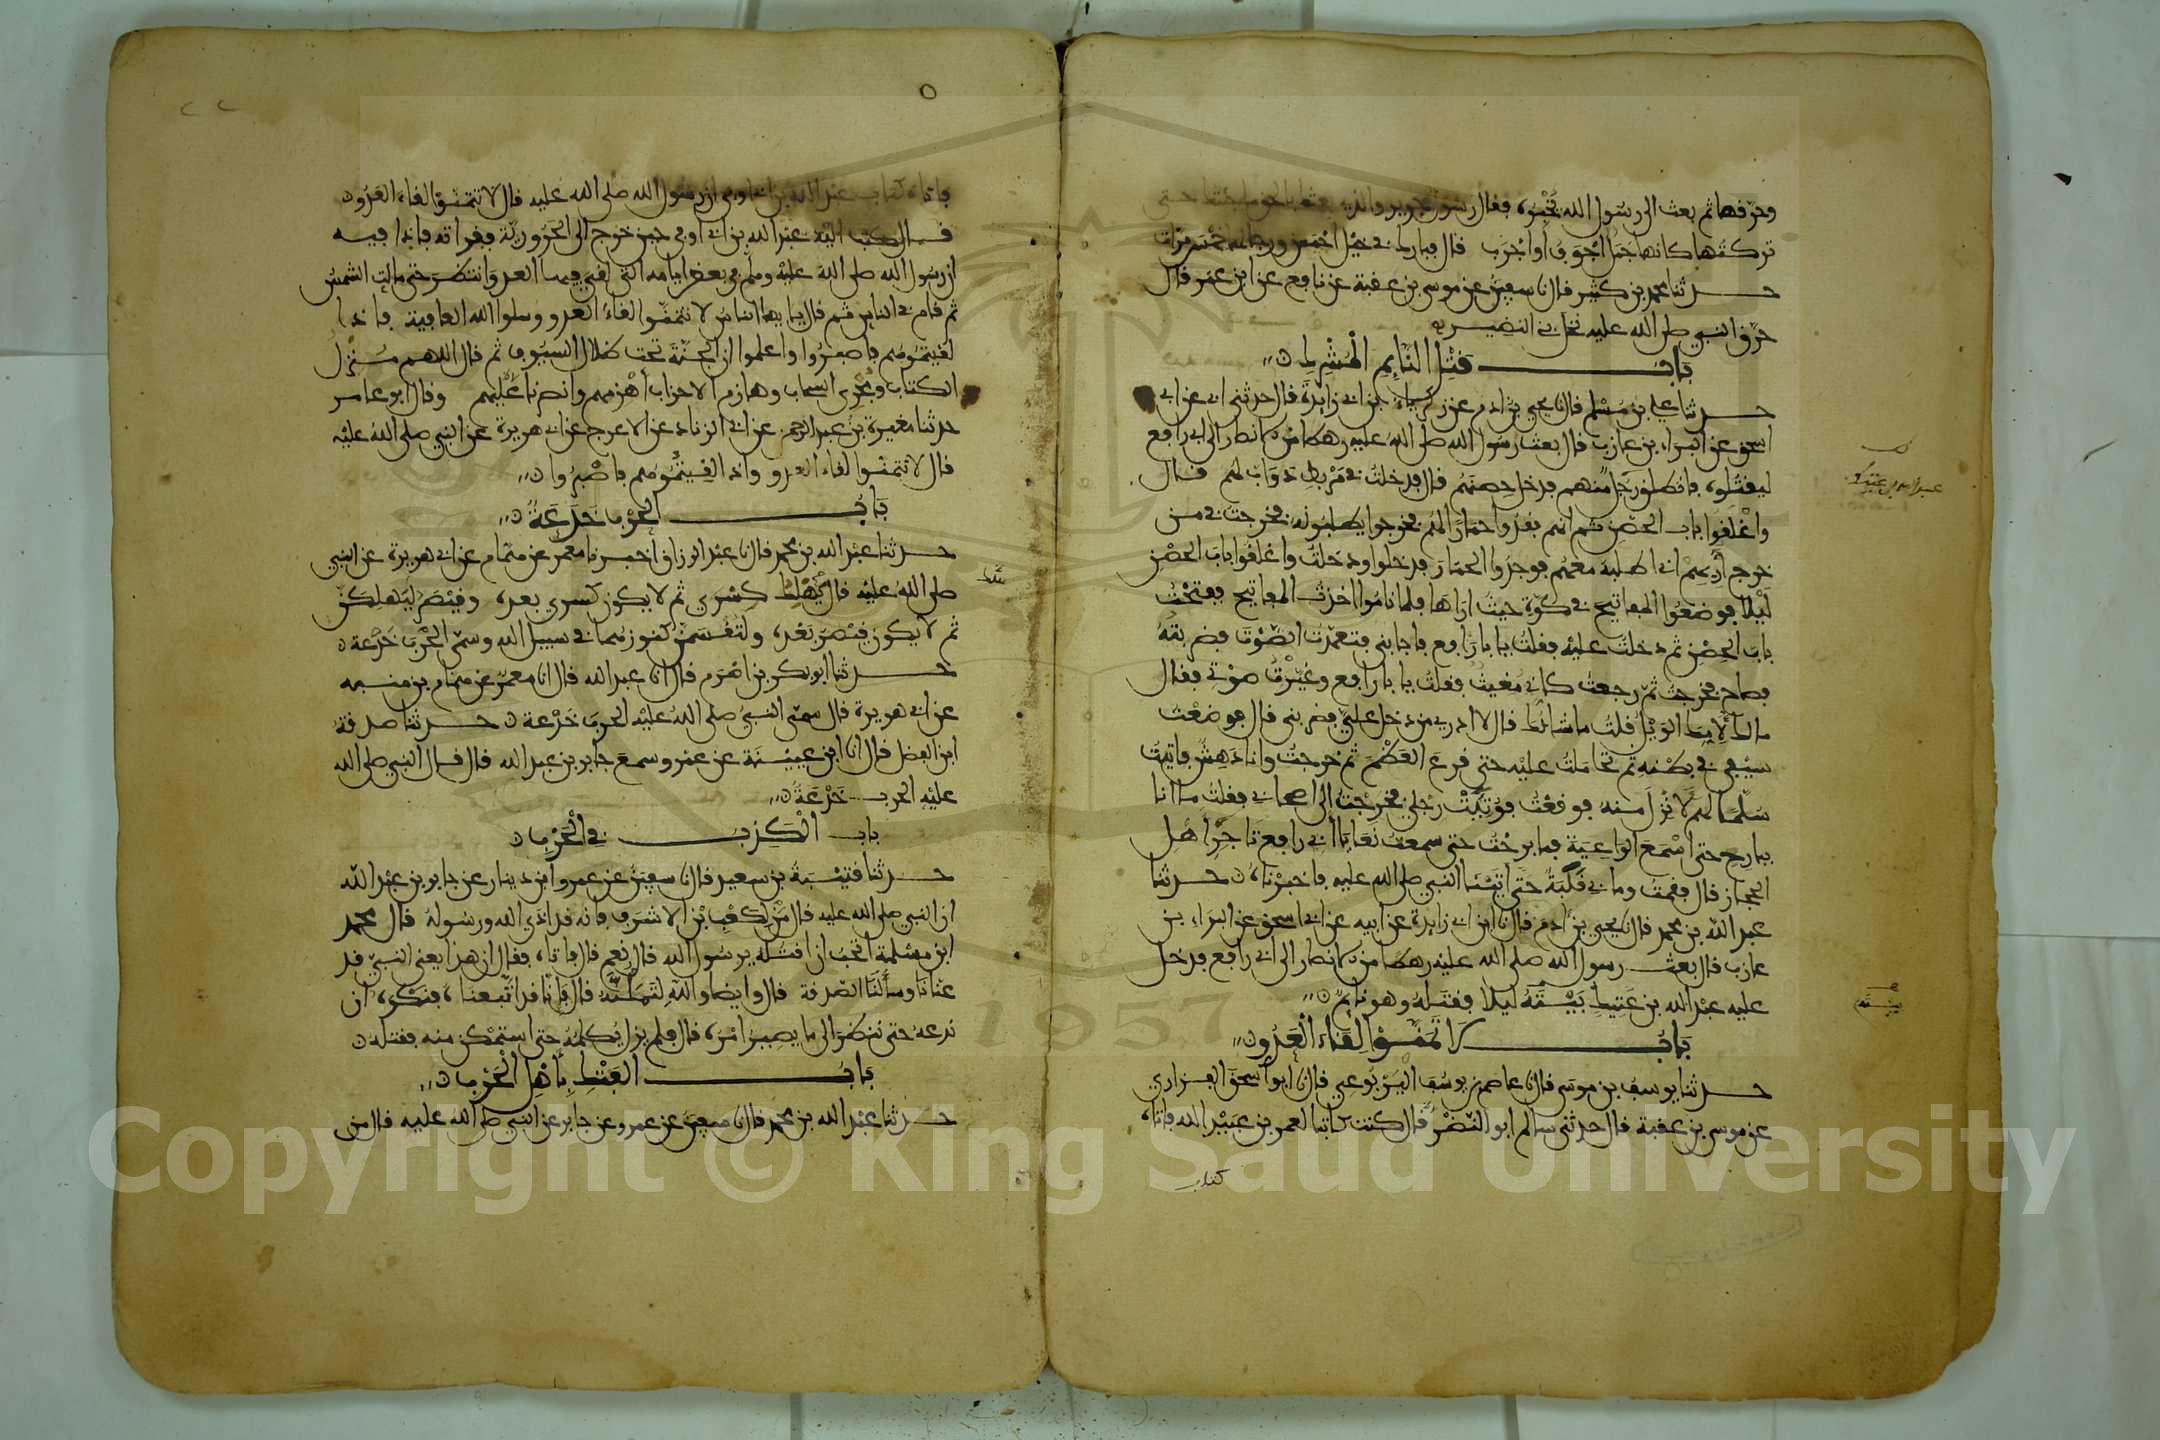 وحرقها ثم بعث الى رسول الله يخبره فقال رسول جرير والذي بعثك بالحق ما جئتك حتى
تركتها كانها جمل اجوف او اجرب قال فبارك في خيل احمس ورجالها خمس مرات
حدثنا محمد بن كثير قال نا سفين عن موسى بن عقبة عن نافع عن ابن عمر قال
حرق النبي صلى الله عليه نخل بني النضير
باب قتل النايم المشرك
حدثنا علي بن مسلم قال نا يحيى بن زكرياء بن ابي زايدة قال حدثني ابي عن ابي
اسحق عن البراء بن عازب قال بعث رسول الله صلى الله عليه رهطا من الانصار الى ابي رافع
ليقتلوه فانطلق رجل منهم فدخل حصنهم قال فدخلت في مربط دواب لهم قال
واغلقوا باب الحصن ثم انهم فقدوا حمارا لهم فخرجوا يطلبونه فخرجت في من
خرج اريهم اني اطلبه معهم فوجدوا الحمار فدخلوا ودخلت واغلقوا باب الحصن
ليلا فوضعوا المفاتيح في كوة حيث اراها فلما ناموا اخذت المفاتيح ففتحت
باب الحصن ثم دخلت عليه فقلت يابا رافع فاجابني فتعمدت الصوت فضربته
فصاح فخرجت ثم رجعت كاني مغيث فقلت يابا رافع وغيرت صوتي فقال
مالك لامك الويل قلت ما شانك قال لا ادري من دخل علي فضربني قال فوضعت
سيفي في بطنه ثم تحاملت عليه حتى قرع العظم ثم خرجت وانا دهش فاتيت
سلما لهم لانزل منه فوقعت فوثئت رجلي فخرجت الى اصحابي فقلت ما انا
ببارح حتى اسمع الواعية فما برحت حتى سمعت نعايا ابي رافع تاجر اهل
الحجاز قال فقمت وما بي قلبة حتى اتينا النبي صلى الله عليه فاخبرناه حدثنا
عبد الله بن محمد قال نا يحيى بن ادم قال نا ابن ابي زايدة عن ابيه عن ابي اسحق عن البراء بن
عازب قال بعث رسول الله صلى الله عليه رهطا من الانصار الى ابي رافع فدخل
عليه عبد الله بن عتيك بيته ليلا فقتله وهو نايم
باب لا تمنوا لقاء العدو
حدثنا يوسف بن موسى قال نا عاصم بن يوسف اليربوعي قال نا ابو اسحق الفزاري
عن موسى بن عقبة قال حدثني سالم ابو النضر قال كنت كاتبا لعمر بن عبيد الله فاتاه
كتاب
عبد الله بن عتيك
بيته
فاتاه كتاب عبد الله بن ابي اوفى ان رسول الله صلى الله عليه قال لا تتمنوا لقاء العدو
قال كتب اليه عبد الله بن ابي اوفى حين خرج الى الحرورية فقراته فاذا فيه
ان رسول الله صلى الله عليه وسلم في بعض ايامه التي لقي فيها العدو انتظر حتى مالت الشمس
ثم قام في الناس ثم قال يايها الناس لا تتمنوا لقاء العدو وسلوا الله العافية فاذا
لقيتموهم فاصبروا واعلموا ان الجنة تحت ظلال السيوف ثم قال اللهم منزل
الكتاب ومجري السحاب وهازم الاحزاب اهزمهم وانصرنا عليهم وقال ابو عامر
حدثنا مغيرة بن عبد الرحمن عن ابي الزناد عن الاعرج عن ابي هريرة عن النبي صلى الله عليه
قال لا تتمنوا لقاء العدو واذا لقيتموهم فاصبروا
باب الحرب خدعة
حدثنا عبد الله بن محمد قال نا عبد الرزاق اخبرنا معمر عن همام عن ابي هريرة عن النبي
صلى الله عليه قال يهلك كسرى ثم لا يكون كسرى بعده وقيصر ليهلكن
ثم لا يكون قيصر بعده ولتقسمن كنوزهما في سبيل الله وسمى الحرب خدعة
حدثنا ابو بكر بن اصرم قال انا عبد الله قال انا معمر عن همام بن منبه
عن ابي هريرة قال سمى النبي صلى الله عليه الحرب خدعة حدثنا صدقة
ابن الفضل قال انا ابن عيينة عن عمرو سمع جابر بن عبد الله قال قال النبي صلى الله
عليه الحرب خدعة
باب الكذب في الحرب
حدثنا قتيبة بن سعيد قال نا سفين عن عمرو بن دينار عن جابر بن عبد الله
ان النبي صلى الله عليه قال من لكعب بن الاشرف فانه قد اذى الله ورسوله قال محمد
ابن مسلمة اتحب ان اقتله يرسول الله قال نعم قال فاتاه فقال ان هذا يعني النبي قد
عنانا وسالنا الصدقة قال وايضا والله لتملنه قال فانا قد اتبعناه فنكره ان
ندعه حتى ننظر الى ما يصير امره قال فلم يزل يكلمه حتى استمكن منه فقتله
باب الفتك باهل الحرب
حدثنا عبد الله بن محمد قال نا سفين عن عمرو عن جابر عن النبي صلى الله عليه قال من
Copyright © King Saud University
1957